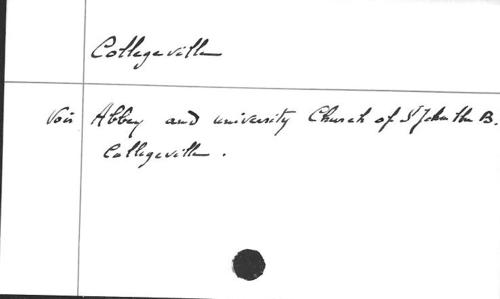 Collegeville
Voir Abbey and university Church of St John the B.
Collegeville.